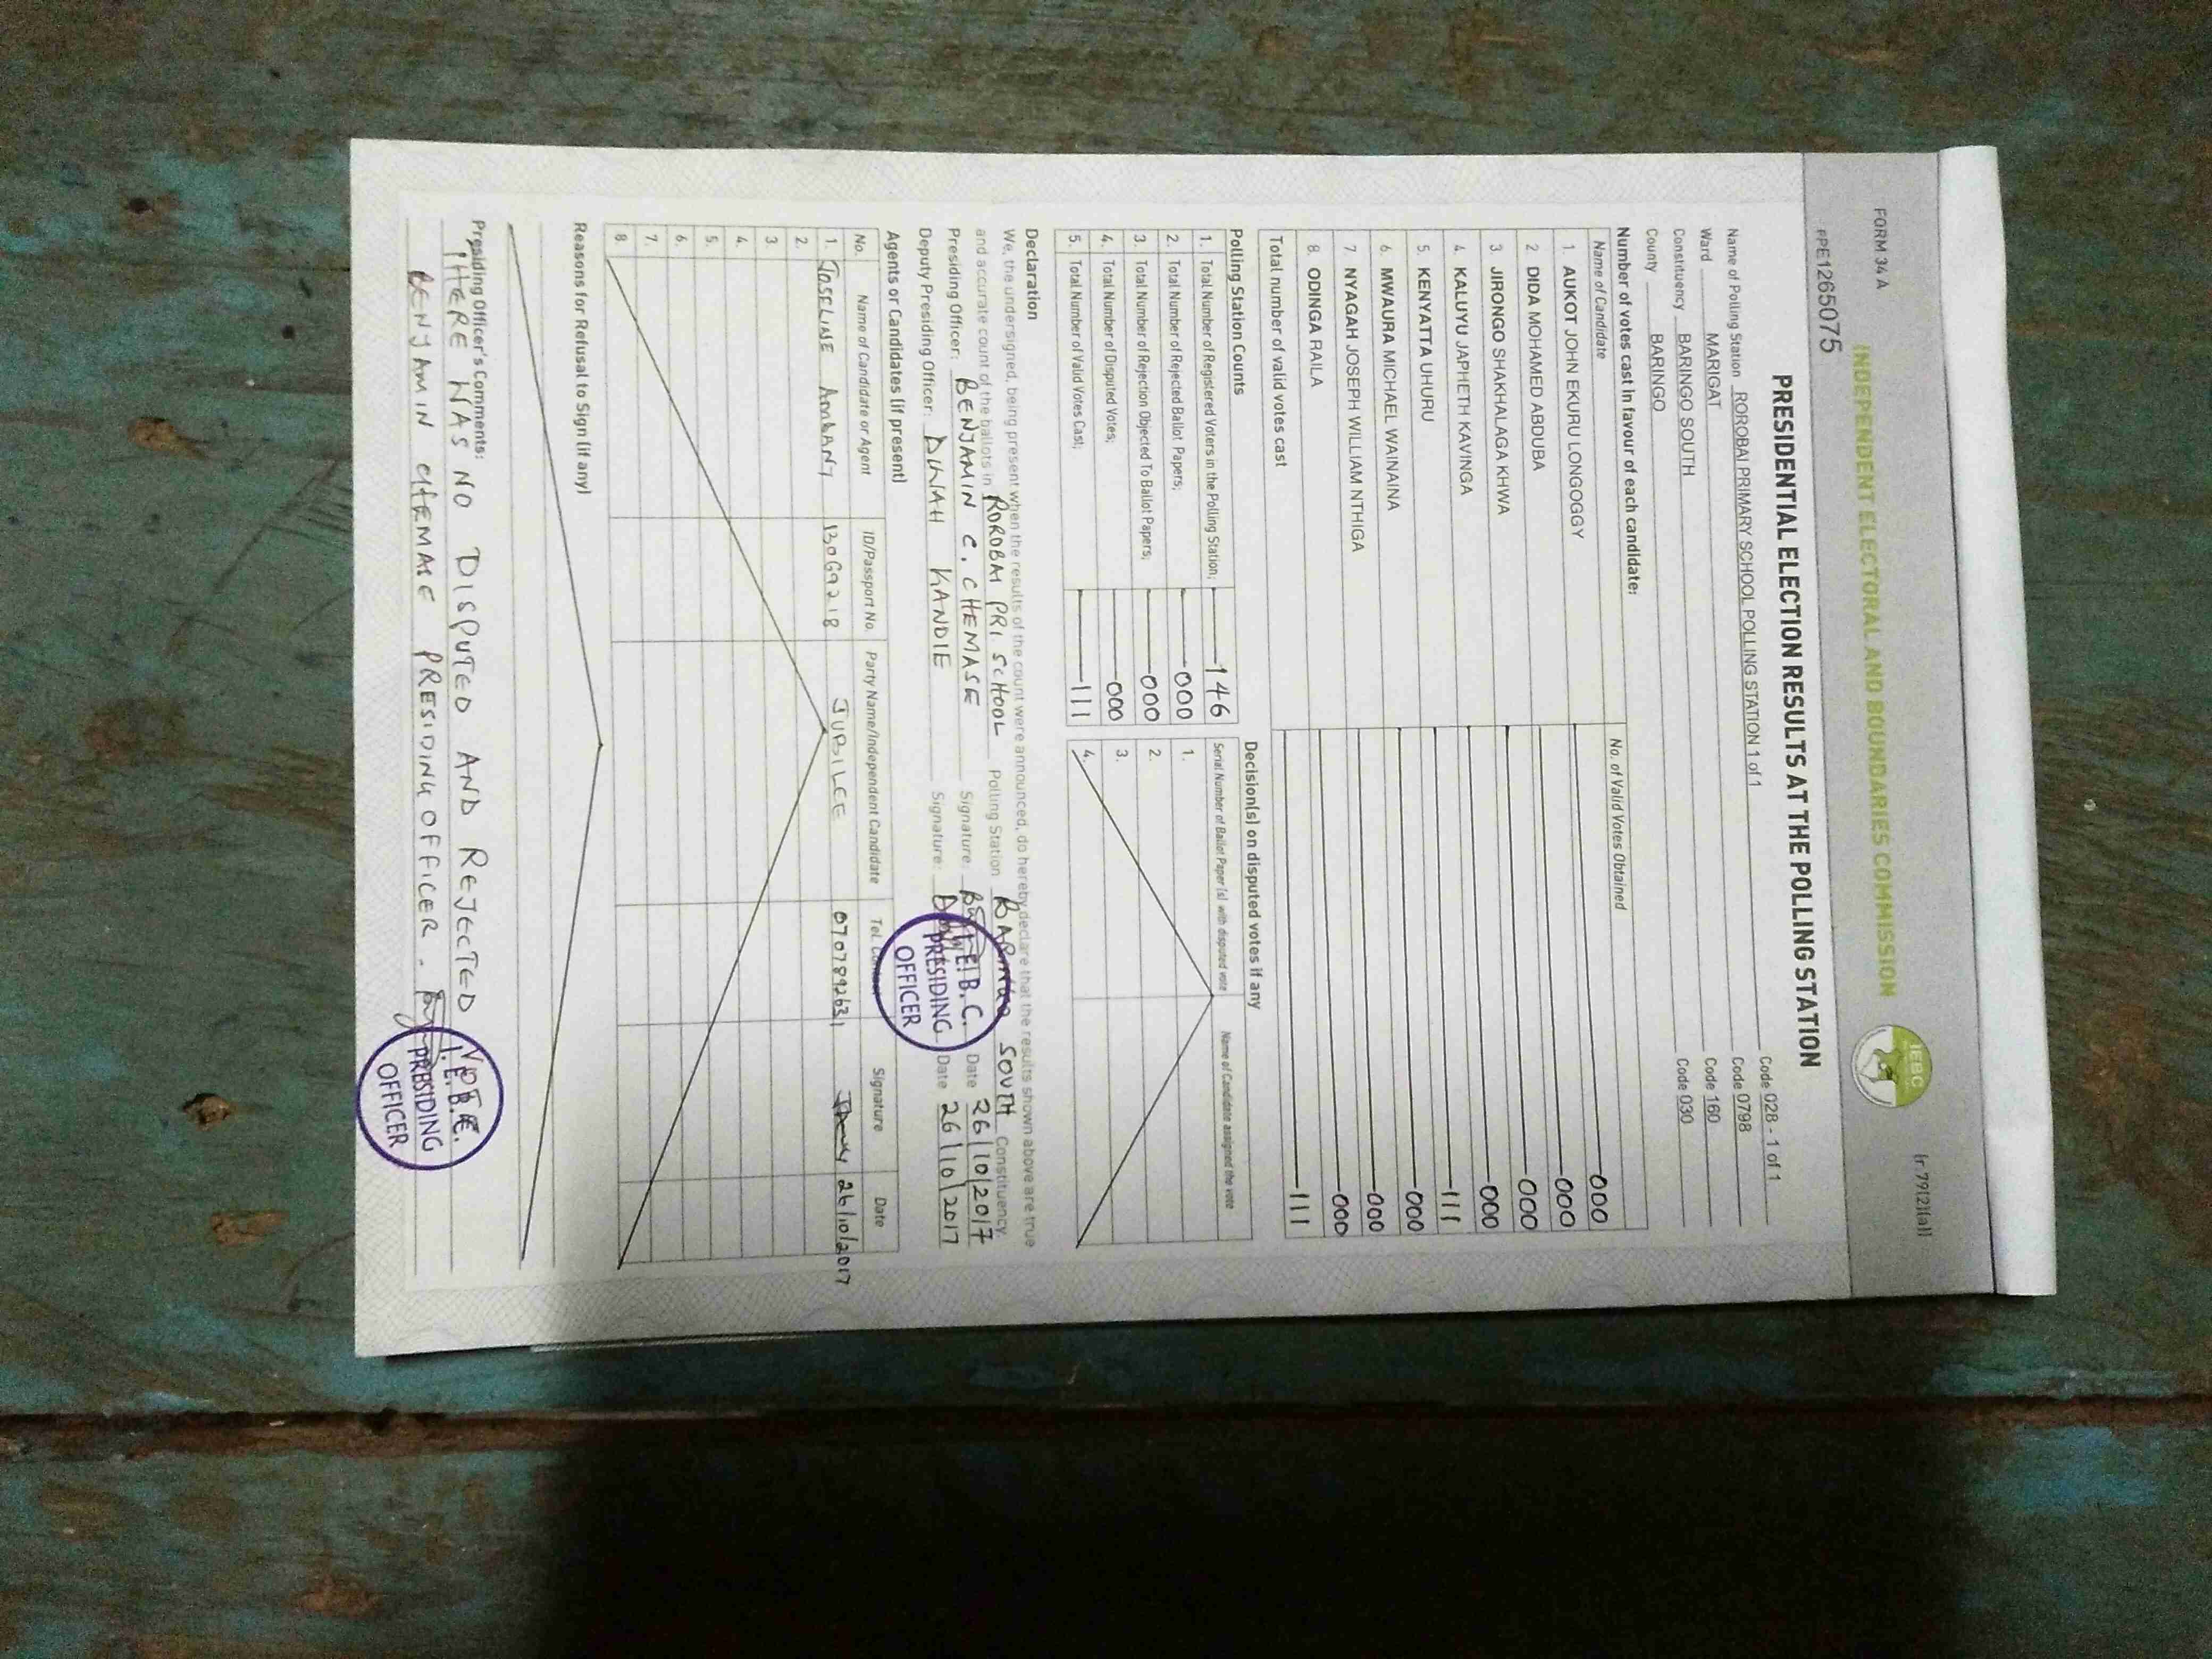 FORM 34 A
(r 79(2)(a))
INDEPENDENT ELECTORAL AND BOUNDARIES COMMISSION
IEBC
PPE1265075
PRESIDENTIAL ELECTION RESULTS AT THE POLLING STATION
Name of Polling Station ROROBAI PRIMARY SCHOOL POLLING STATION 1 of 1 Code 028 - 1 of 1
Code 0798
Ward MARIGAT Code 160
Constituency BARINGO SOUTH Code 030
County BARINGO
Number of votes cast in favour of each candidate:
Name of Candidate No. of Valid Votes Obtained
1. AUKOT JOHN EKURU LONGOGGY 000
2 DIDA MOHAMED ABDUBA 000
3. JIRONGO SHAKHALAGA KHWA 000
4 KALUYU JAPHETH KAVINGA 000
5. KENYATTA UHURU 111
6 MWAURA MICHAEL WAINAINA 000
7 NYAGAH JOSEPH WILLIAM NTHIGA 000
8. ODINGA RAILA 000
Total number of valid votes cast 111
Polling Station Counts
1. Total Number of Registered Voters in the Polling Station; 146
2. Total Number of Rejected Ballot Papers; 000
3. Total Number of Rejection Objected To Ballot Papers; 000
4. Total Number of Disputed Votes; 000
5. Total Number of Valid Votes Cast; 111
Decision(s) on disputed votes if any
Serial Number of Ballot Paper (s) with disputed vote Name of Candidate assigned the vote
1.
2.
3.
4.
Declaration
We, the undersigned, being present when the results of the count were announced, do hereby declare that the results shown above are true
and accurate count of the ballots in ROROBAI PRI SCHOOL Polling Station BARINGO SOUTH Constituency.
Presiding Officer: BENJAMIN C. CHEMASE Signature: Date 26/10/2017
Deputy Presiding Officer: DINAH KANDIE Signature: Date 26/10/2017
I.E.B.C.
PRESIDING
OFFICER
Agents or Candidates (if present)
No. Name of Candidate or Agent ID/Passport No. Party Name/Independent Candidate Tel. Contact Signature Date
1. JOSELINE 13069218 JUBILEE 0707892631 26/10/2017
2.
3
4.
5.
6.
7.
8.
Reasons for Refusal to Sign (if any)
Presiding Officer's Comments:
THERE WAS NO DISPUTED AND REJECTED VOTE.
BENJAMIN CHEMASE PRESIDING OFFICER.
I.E.B.C.
PRESIDING
OFFICER